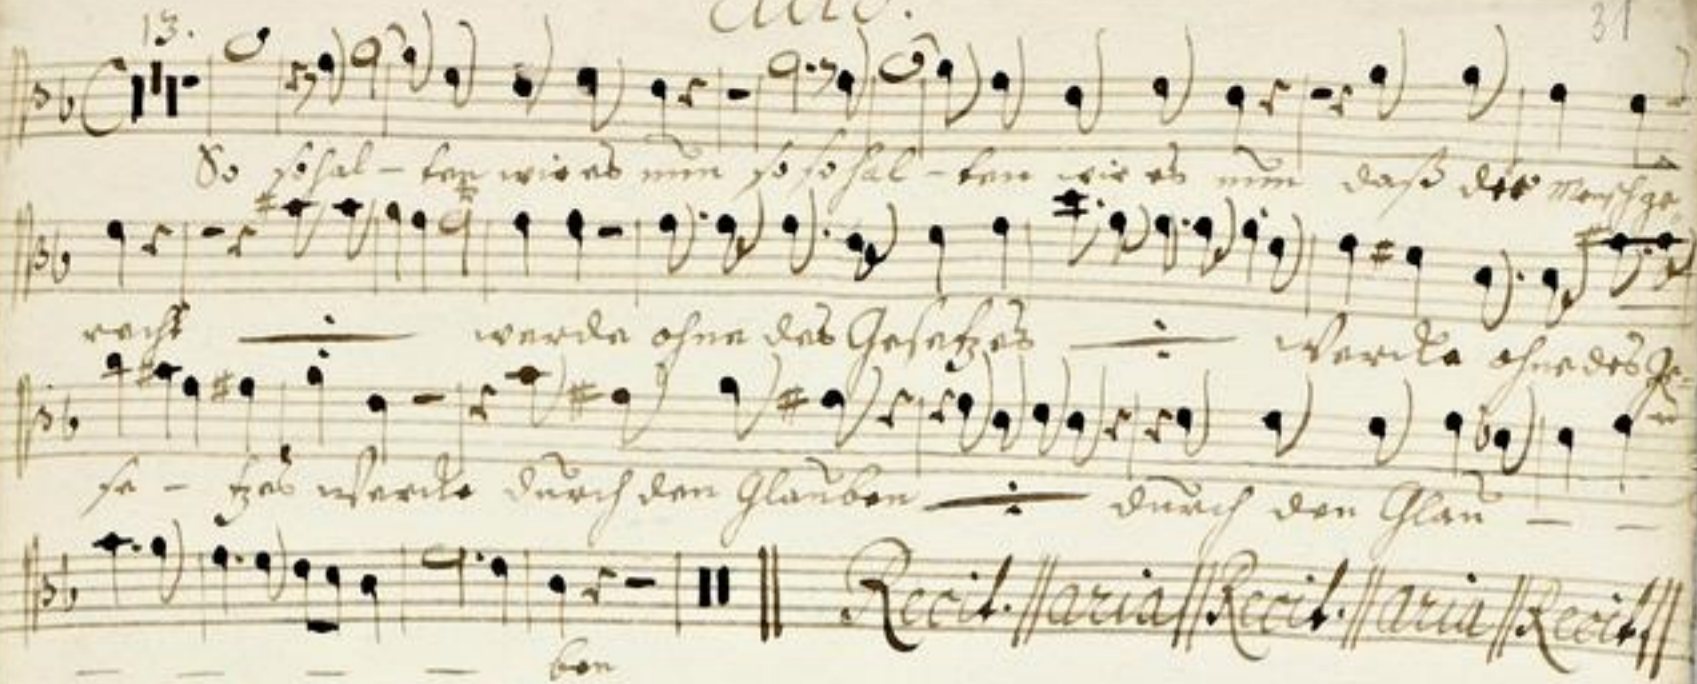 13. 31
So so hal - ten wir es nun so so hal - ten wir es nun daß der Mensch ge-
recht ÷ werde ohne des Gesetzes ÷ Wercke ohne des Ge-
se - tzes Wercke durch den Glauben ÷ durch den Glau - -
Recit. || aria || Recit. || aria || Recit ||
- - - - ben